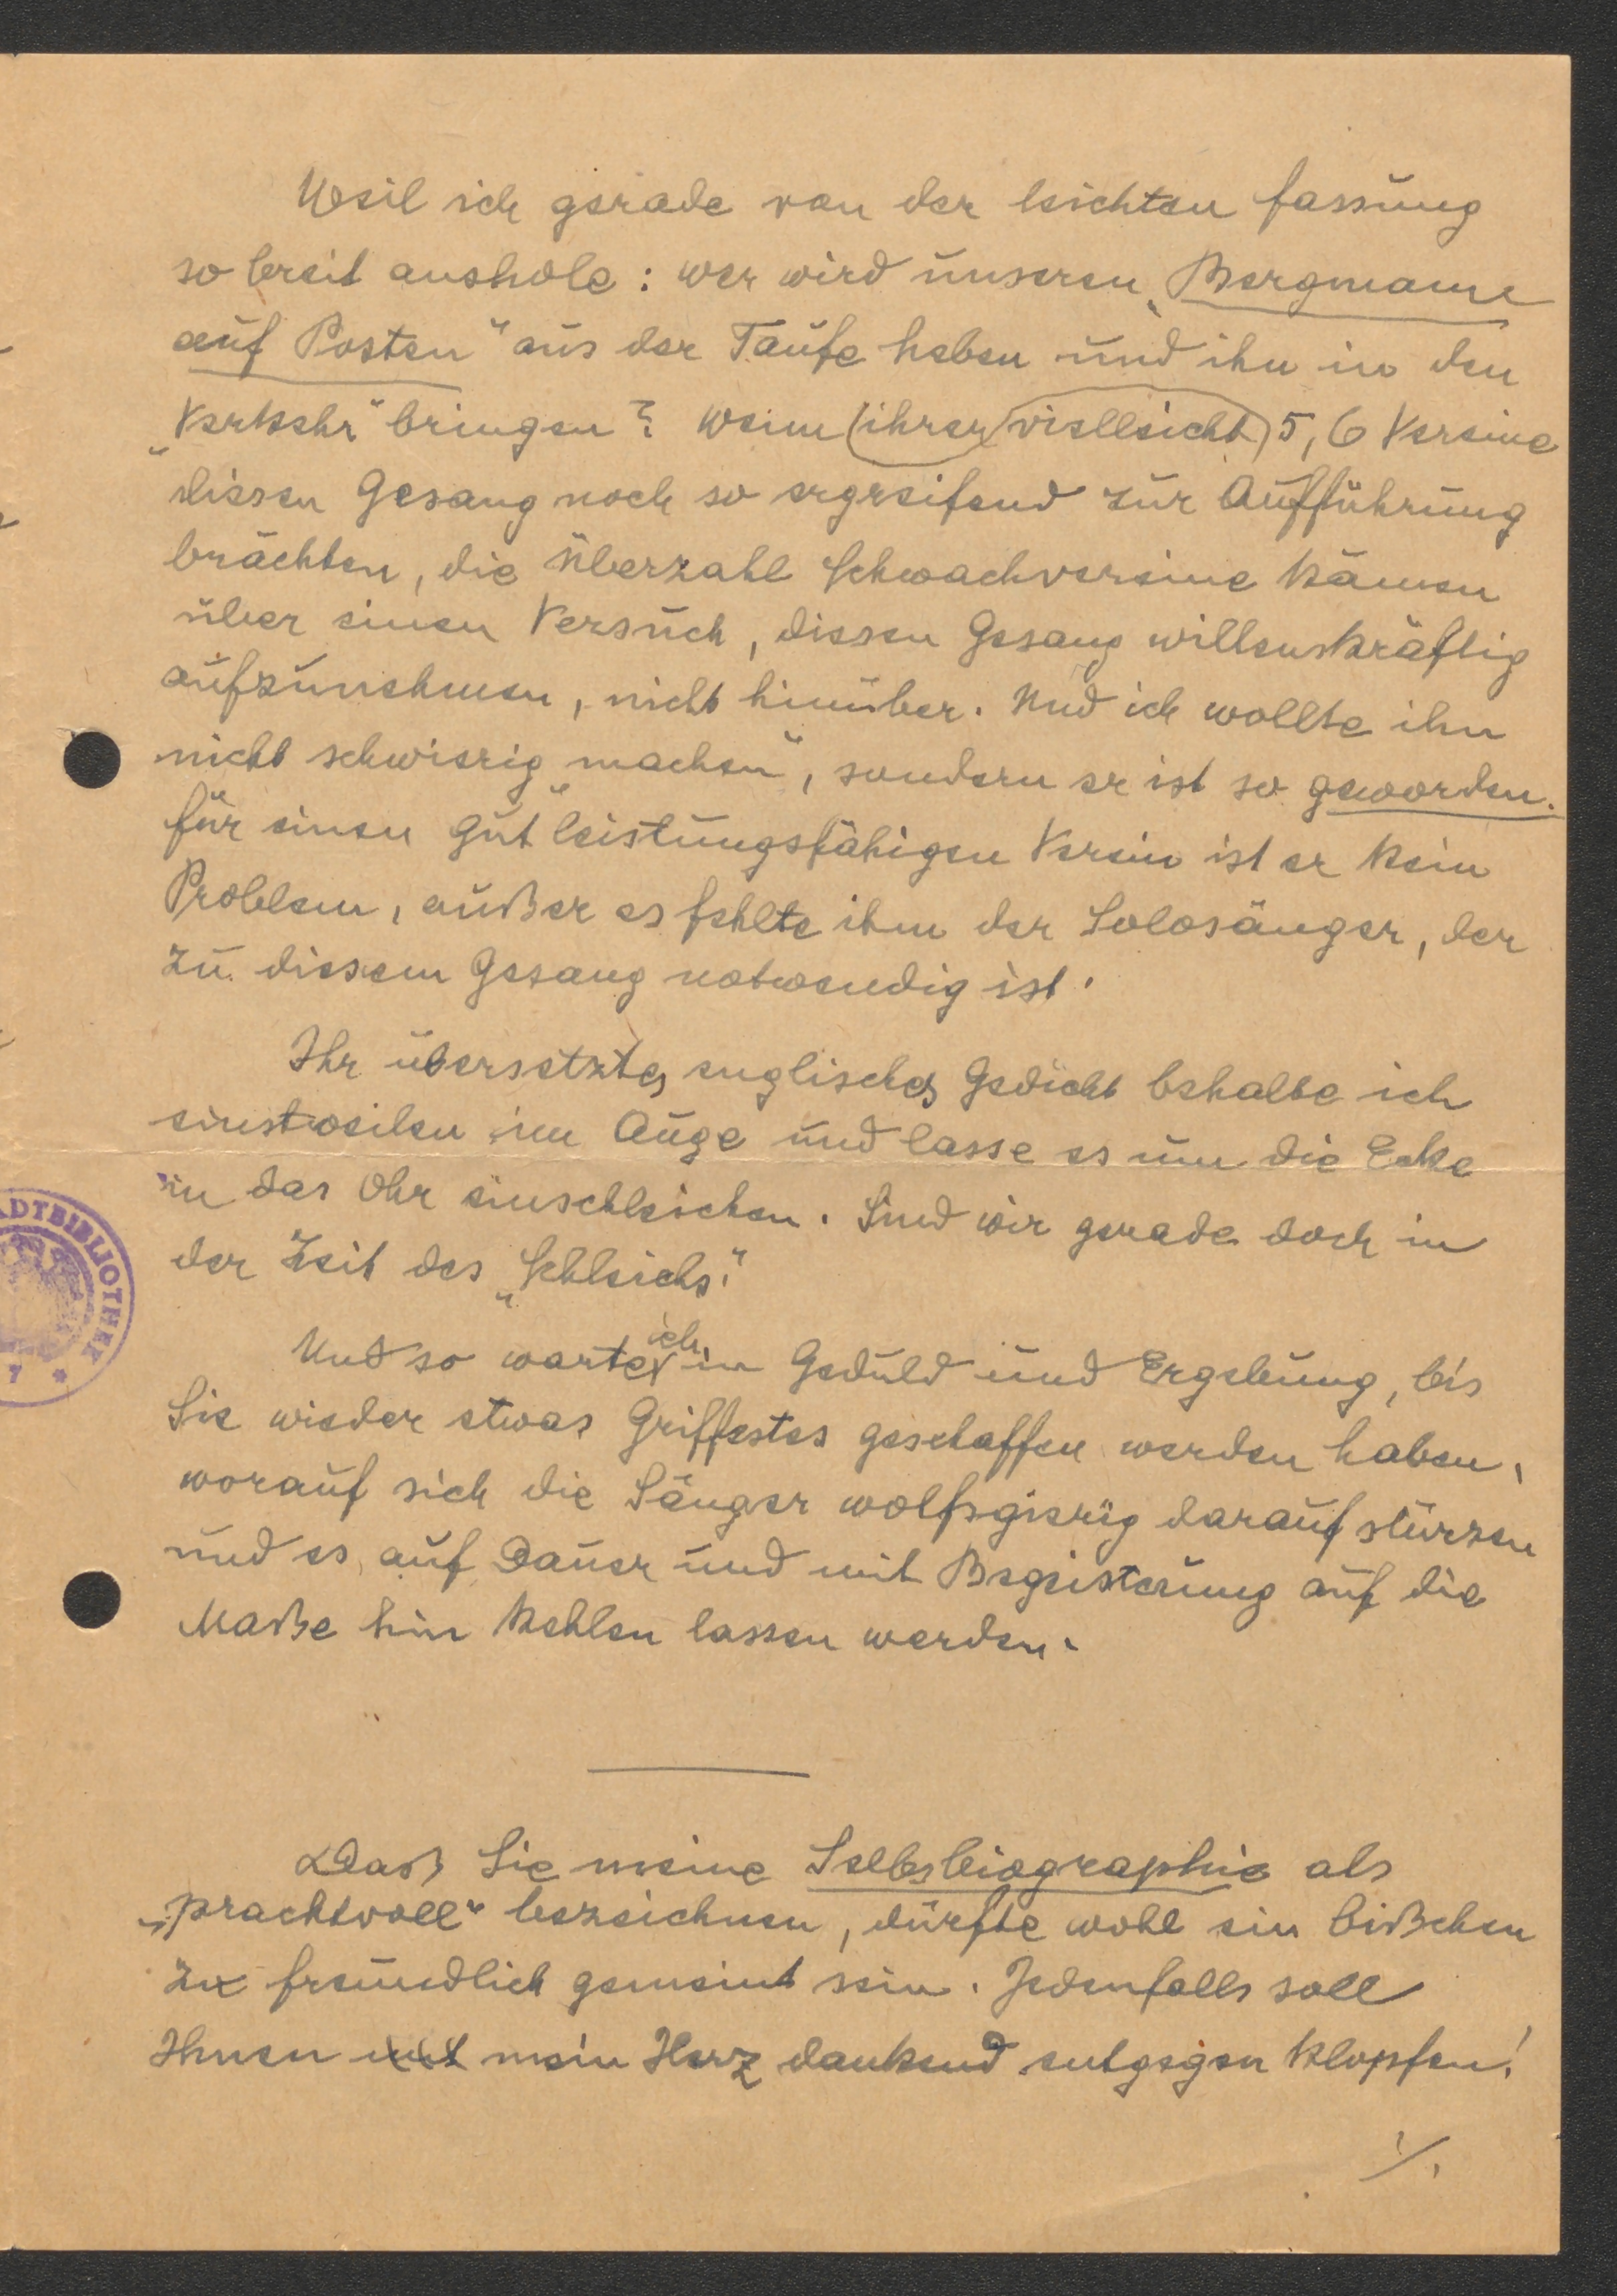 Weil ich gerade von der leichten Fassung
so breit aushole: wer wird unseren „Bergmann
auf Posten“ aus der Taufe heben und ihn in den
„Verkehr“ bringen? Wenn ihrer vielleicht 5, 6 Vereine
diesen Gesang noch so ergreifend zur Aufführung
brächten, die Überzahl Schwachvereine kämen
über einen Versuch, diesen Gesang willenskräftig
aufzunehmen, nicht hinüber. Und ich wollte ihn
nicht schwierig „machen“, sondern er ist so geworden.
Für einen gut leistungsfähigen Verein ist er kein
Problem, außer es fehlte ihm der Solosänger, der
zu diesem Gesang notwendig ist.
Ihr übersetztes englisches Gedicht behalte ich
einstweilen im Auge und lasse es um die Ecke
in das Ohr einschleichen. Sind wir gerade doch in
der Zeit des „Schleichs“.
Und so warte ich in Geduld und Ergebung, bis
Sie wieder etwas Griffestes geschaffen werden haben,
worauf sich die Sänger wolfsgierig darauf stürzen
und es auf Dauer und mit Begeisterung auf die
Maße hin kehlen lassen werden.
Daß Sie meine Selbsbiographie als
„prachtvoll“ bezeichnen, dürfte wohl ein bißchen
zu freundlich gemeint sein. Jedenfalls soll
Ihnen mein Herz dankend entgegen klopfen!
./.
ADTBIBLIOTHEK
7 *